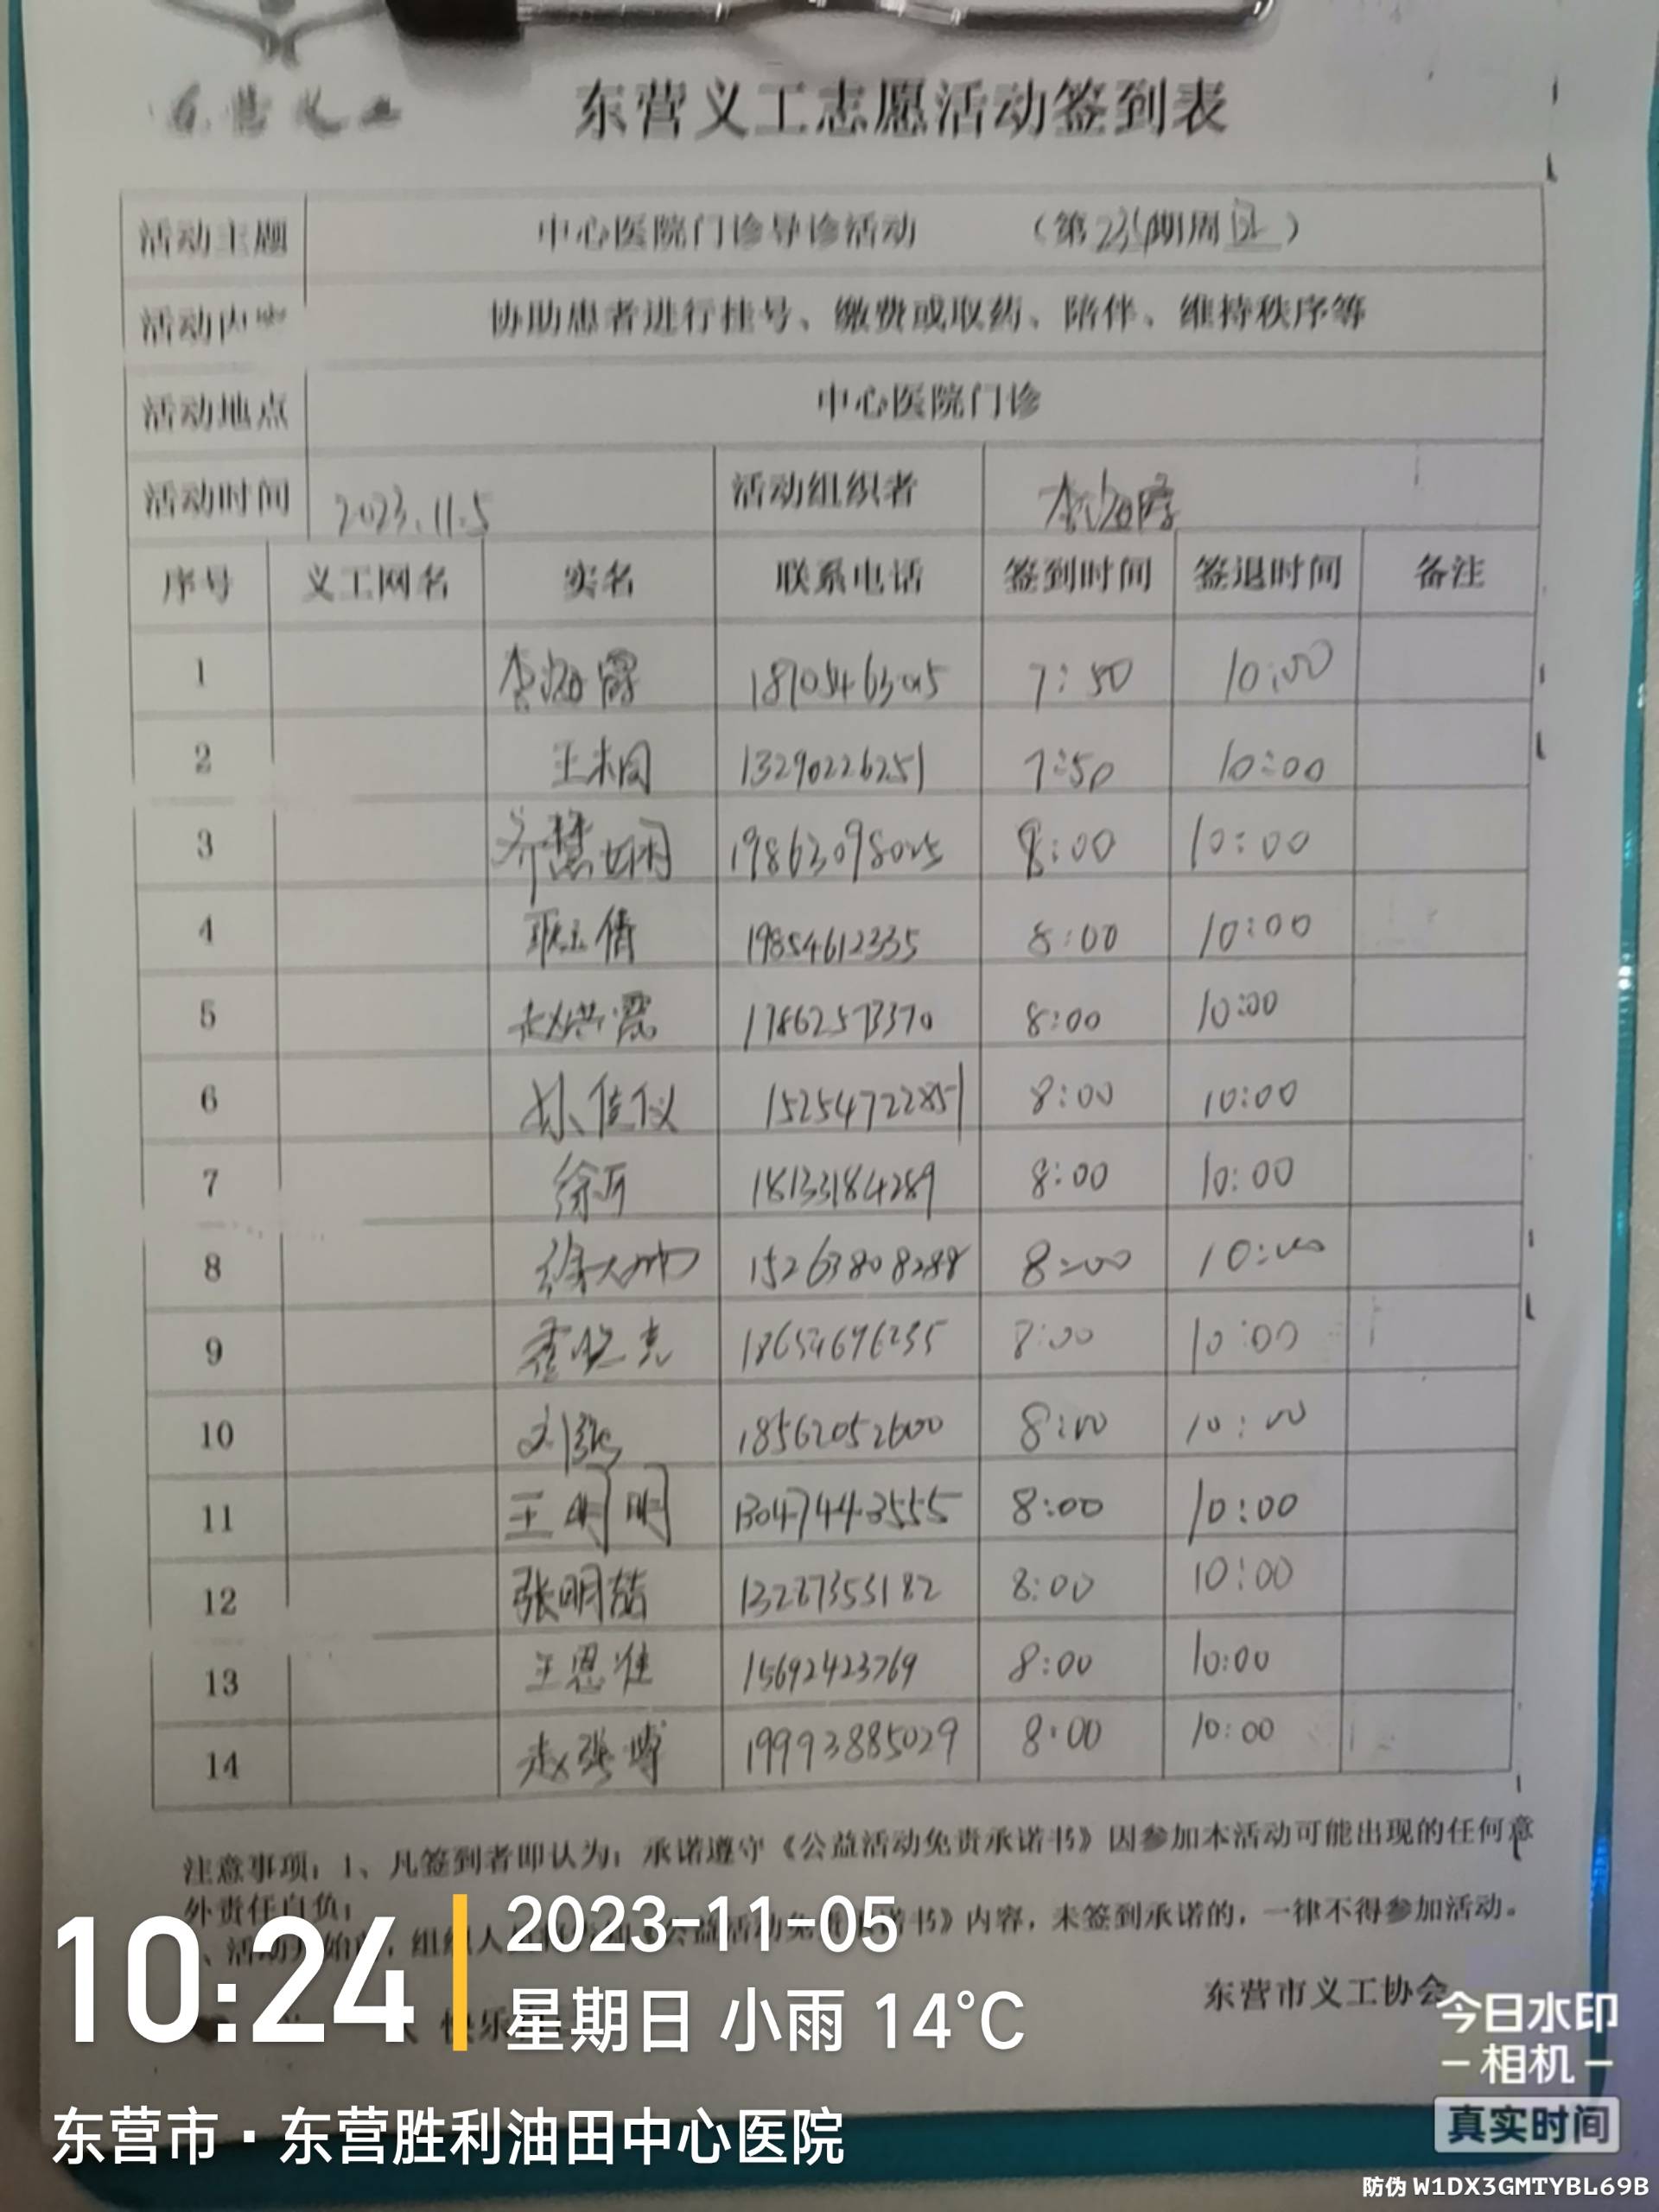 东营义工
东营义工志愿活动签到表
活动主题 中心医院门诊导诊活动 (第 期周日)
活动内容 协助患者进行挂号、缴费或取药、陪伴、维持秩序等
活动地点 中心医院门诊
活动时间 2023.11.5 活动组织者
序号 义工网名 实名 联系电话 签到时间 签退时间 备注
1 7:50 10:00
2 13290226251 7:50 10:00
3 齐慧娴 8:00 10:00
4 19854612335 8:00 10:00
5 17862573370 8:00 10:00
6 佳仪 15254722851 8:00 10:00
7 18133184289 8:00 10:00
8 15263808288 8:00 10:00
9 18654696235 8:00 10:00
10 18562052600 8:00 10:00
11 王明明 13047443555 8:00 10:00
12 张明喆 8:00 10:00
13 王恩佳 15692423769 8:00 10:00
14 赵张 19993885029 8:00 10:00
注意事项:1、凡签到者即认为:承诺遵守《公益活动免责承诺书》因参加本活动可能出现的任何意
外责任自负;
、活动开始前,组织人 公益活动免责承诺书》内容,未签到承诺的,一律不得参加活动。
东营市义工协会
快乐
10:24
2023-11-05
星期日 小雨 14°C
东营市·东营胜利油田中心医院
今日水印
相机
真实时间
防伪 W1DX3GMTYBL69B